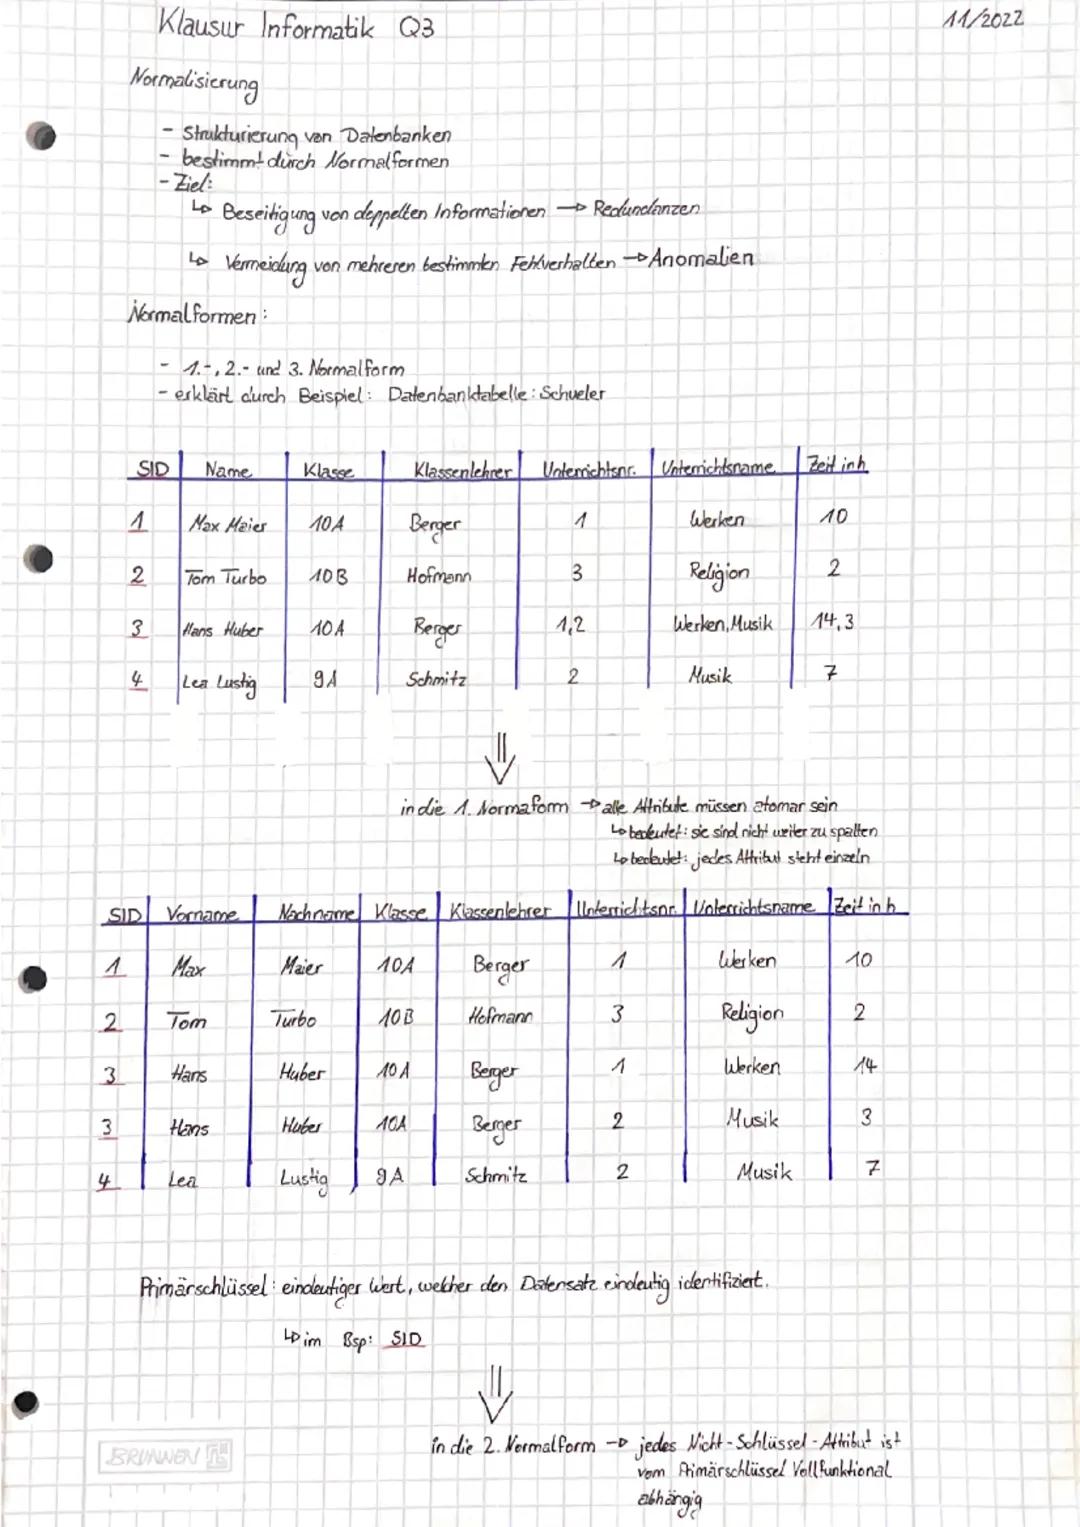 Klausur Informatik Q3 11/2022
Normalisierung
- Strukturierung von Datenbanken
- bestimmt durch Normalformen
- Ziel:
↳ Beseitigung von doppelten Informationen → Redundanzen
↳ Vermeidung von mehreren bestimmten Fehlverhalten → Anomalien
Normalformen:
- 1.-, 2.- und 3. Normalform
- erklärt durch Beispiel: Datenbanktabelle: Schueler
SID Name Klasse Klassenlehrer Unterrichtsnr. Unterrichtsname Zeit in h
1 Max Maier 10A Berger 1 Werken 10
2 Tom Turbo 10B Hofmann 3 Religion 2
3 Hans Huber 10A Berger 1,2 Werken, Musik 14,3
4 Lea Lustig 9A Schmitz 2 Musik 7
in die 1. Normaform → alle Attribute müssen atomar sein
↳ bedeutet: sie sind nicht weiter zu spalten
↳ bedeutet: jedes Attribut steht einzeln
SID Vorname Nachname Klasse Klassenlehrer Unterrichtsnr. Unterrichtsname Zeit in h
1 Max Maier 10A Berger 1 Werken 10
2 Tom Turbo 10B Hofmann 3 Religion 2
3 Hans Huber 10A Berger 1 Werken 14
3 Hans Huber 10A Berger 2 Musik 3
4 Lea Lustig 9A Schmitz 2 Musik 7
Primärschlüssel: eindeutiger Wert, welcher den Datensatz eindeutig identifiziert.
↳ im Bsp: SID
in die 2. Normalform → jedes Nicht-Schlüssel-Attribut ist
vom Primärschlüssel Vollfunktional
abhängig
BRUNNEN